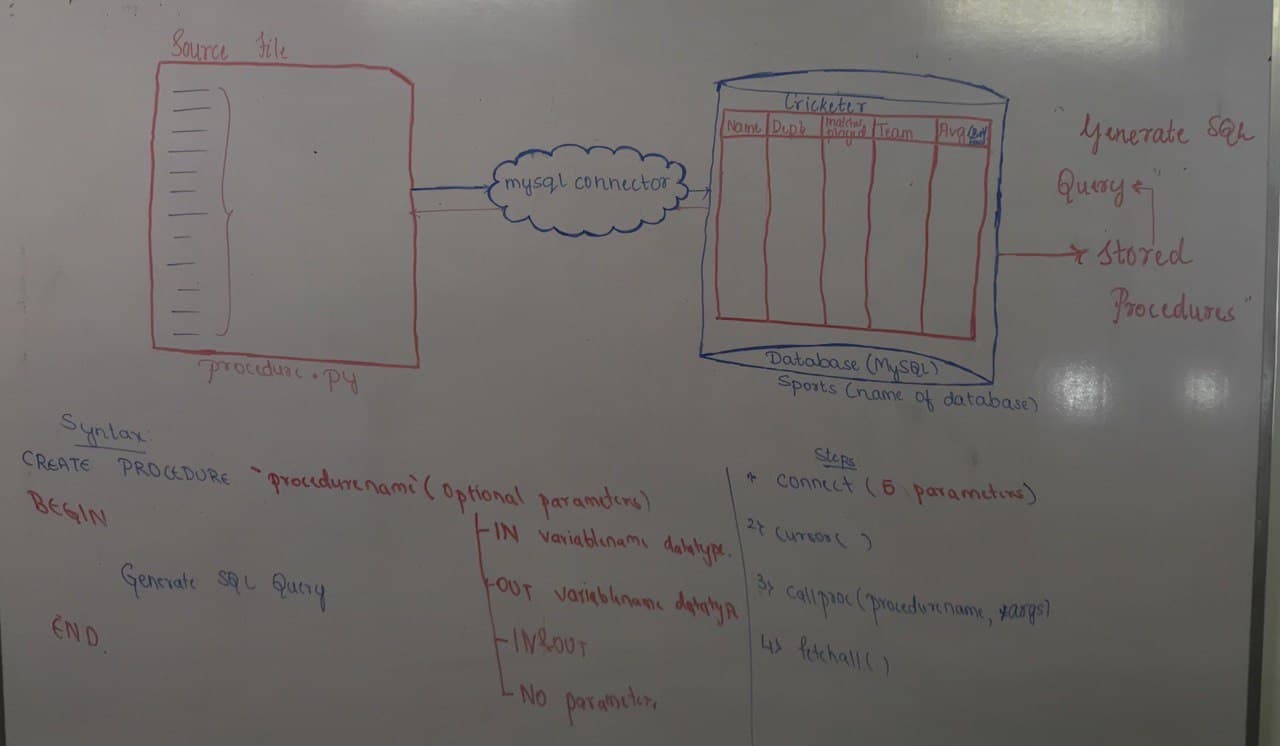 Source File
procedure.py
mysql connector
Cricketer
Name Dept matches played Team Avg
Database (MySQL)
Sports (name of database)
"Generate SQL
Query"
stored
Procedures"
Syntax:
CREATE PROCEDURE `procedurename` (Optional parameters)
BEGIN
IN variablename datatype.
OUT variablename
Generate SQL Query
IN&OUT
END.
No parameter.
Steps
connect (5 parameters)
2> cursor( )
3> callproc(procedurename, *args)
4> fetchall()